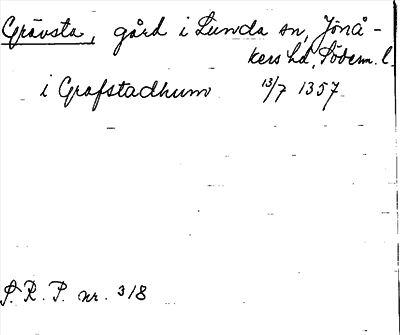 Grävsta, gård i Lunda sn, Jönå-
kers hd, Söderm. l.
i Grafstadhum 13/7 1357
S. R. P. nr. 318